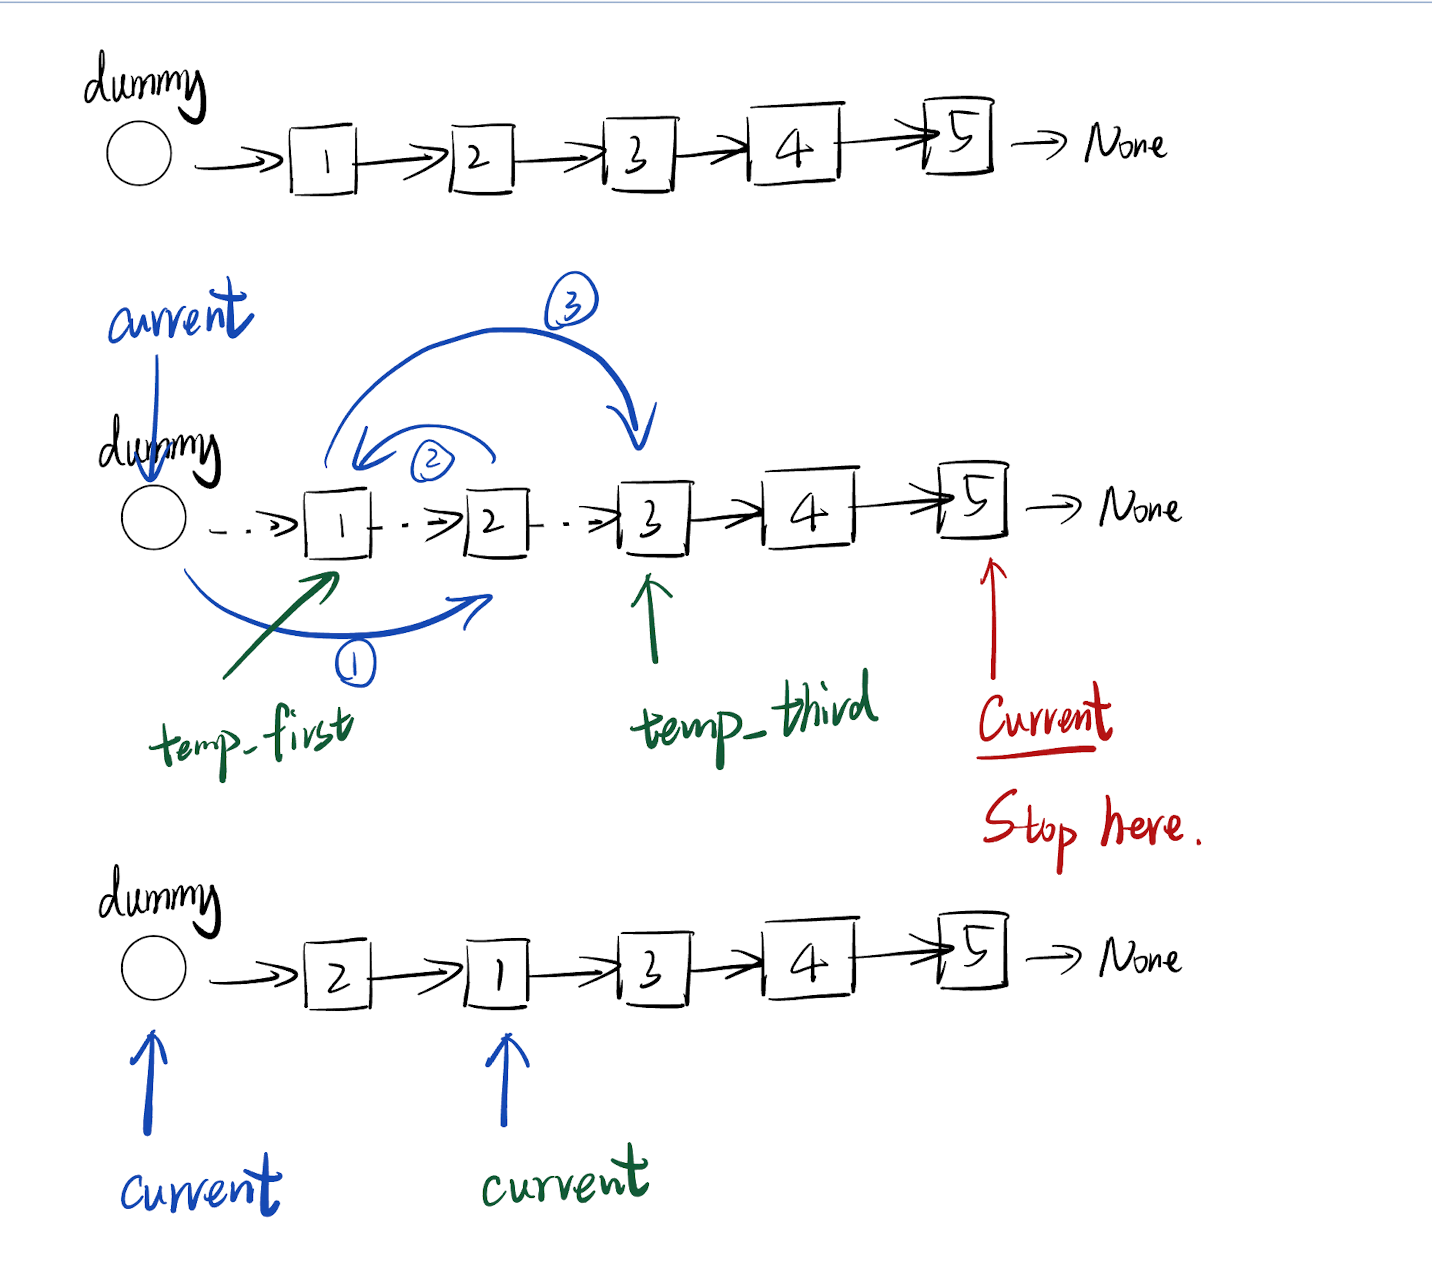 dummy
1 2 3 4 5 None
current
③
dummy
②
1 2 3 4 5 None
①
temp_first
temp_third
Current
Stop here.
dummy
2 1 3 4 5 None
current
current